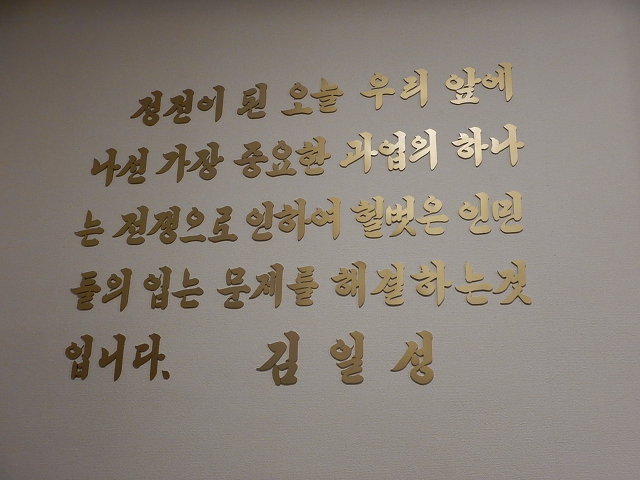 정전이 된 오늘 우리 앞에
나선 가장 중요한 과업의 하나
는 전쟁으로 인하여 헐벗은 인민
들의 입는 문제를 해결하는것
입니다.    김 일 성